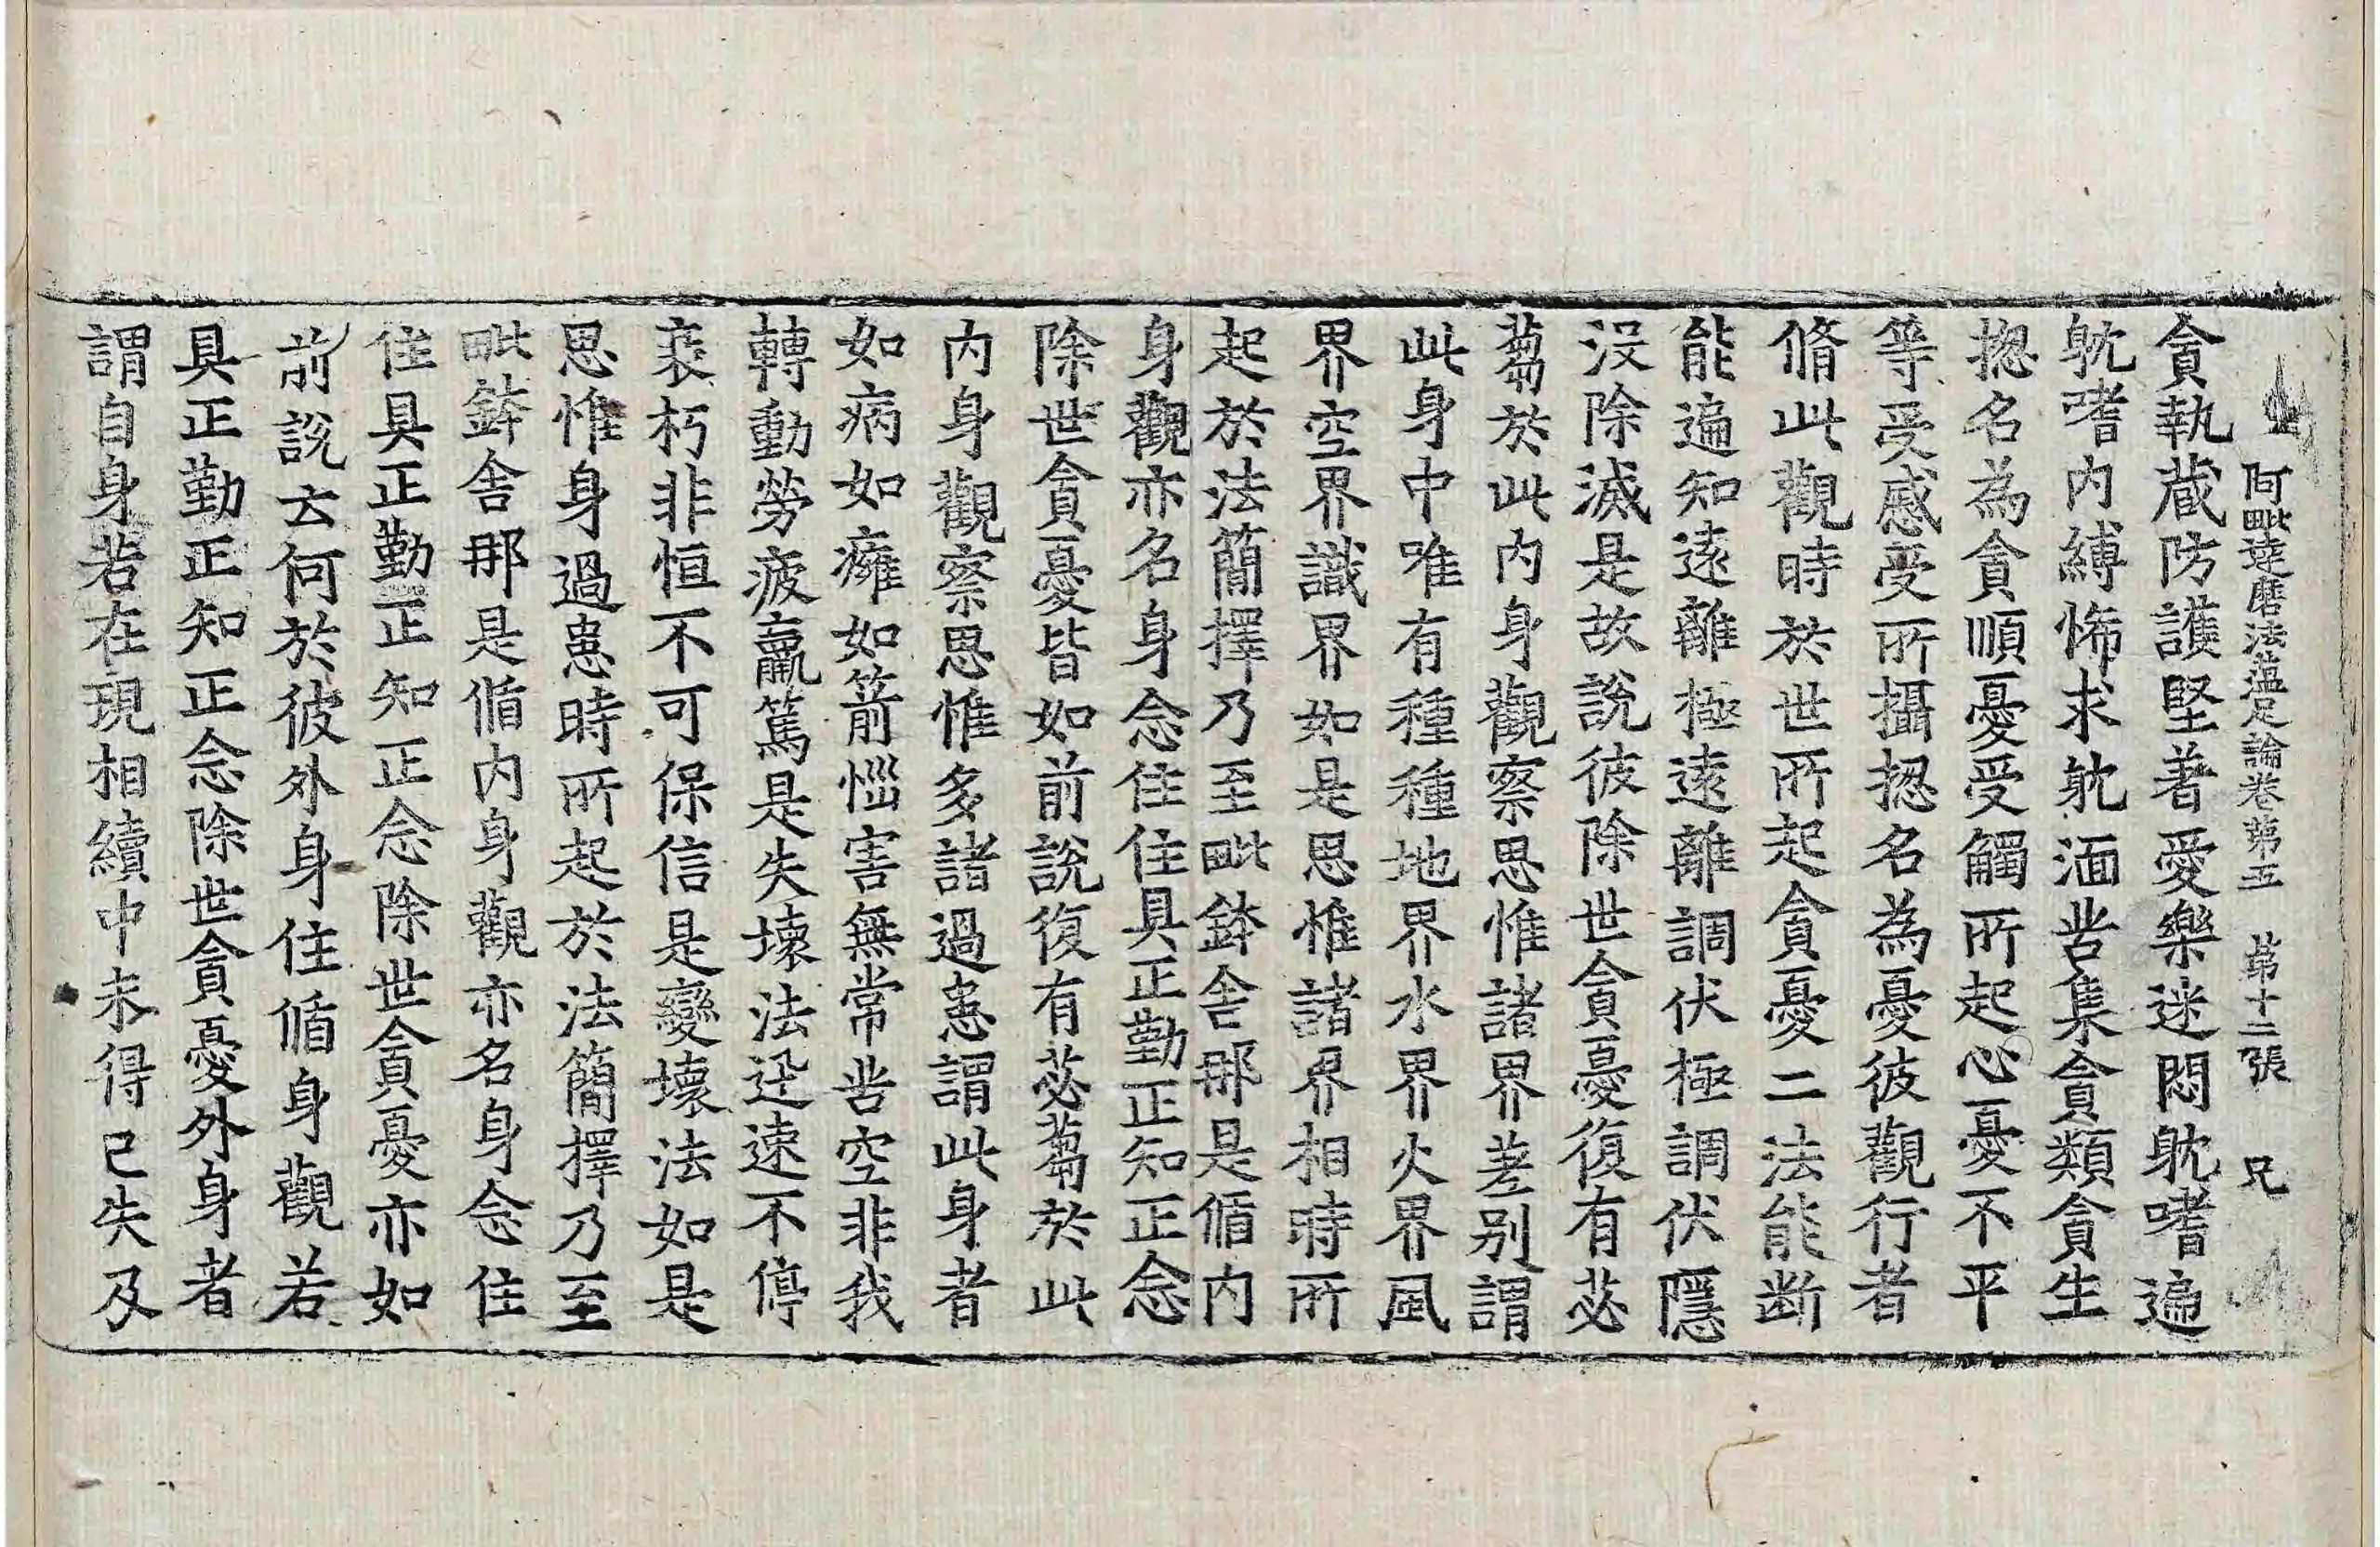 阿毗達磨法蘊足論卷第五 第十二張 兄
貪執藏防護堅著愛樂迷悶躭嗜遍
躭嗜内縛悕求躭湎苦集貪類貪生
揔名為貪順憂受觸所起心憂不平
等受慼受所攝揔名為憂彼觀行者
脩此觀時於世所起貪憂二法能断
能遍知遠離極遠離調伏極調伏隱
沒除滅是故說彼除世貪憂復有苾
蒭於此内身觀察思惟諸界差别謂
此身中唯有種種地界水界火界風
界空界識界如是思惟諸界相時所
起於法簡擇乃至毗鉢舍那是循内
身觀亦名身念住住具正勤正知正念
除世貪憂皆如前說復有苾蒭於此
内身觀察思惟多諸過患謂此身者
如病如癰如箭惱害無常苦空非我
轉動勞疲羸篤是失壞法迅速不停
衰朽非恒不可保信是變壞法如是
思惟身過患時所起於法簡擇乃至
毗鉢舍那是循内身觀亦名身念住
住具正勤正知正念除世貪憂亦如
前說云何於彼外身住循身觀若
具正勤正知正念除世貪憂外身者
謂自身若在現相續中未得已失及